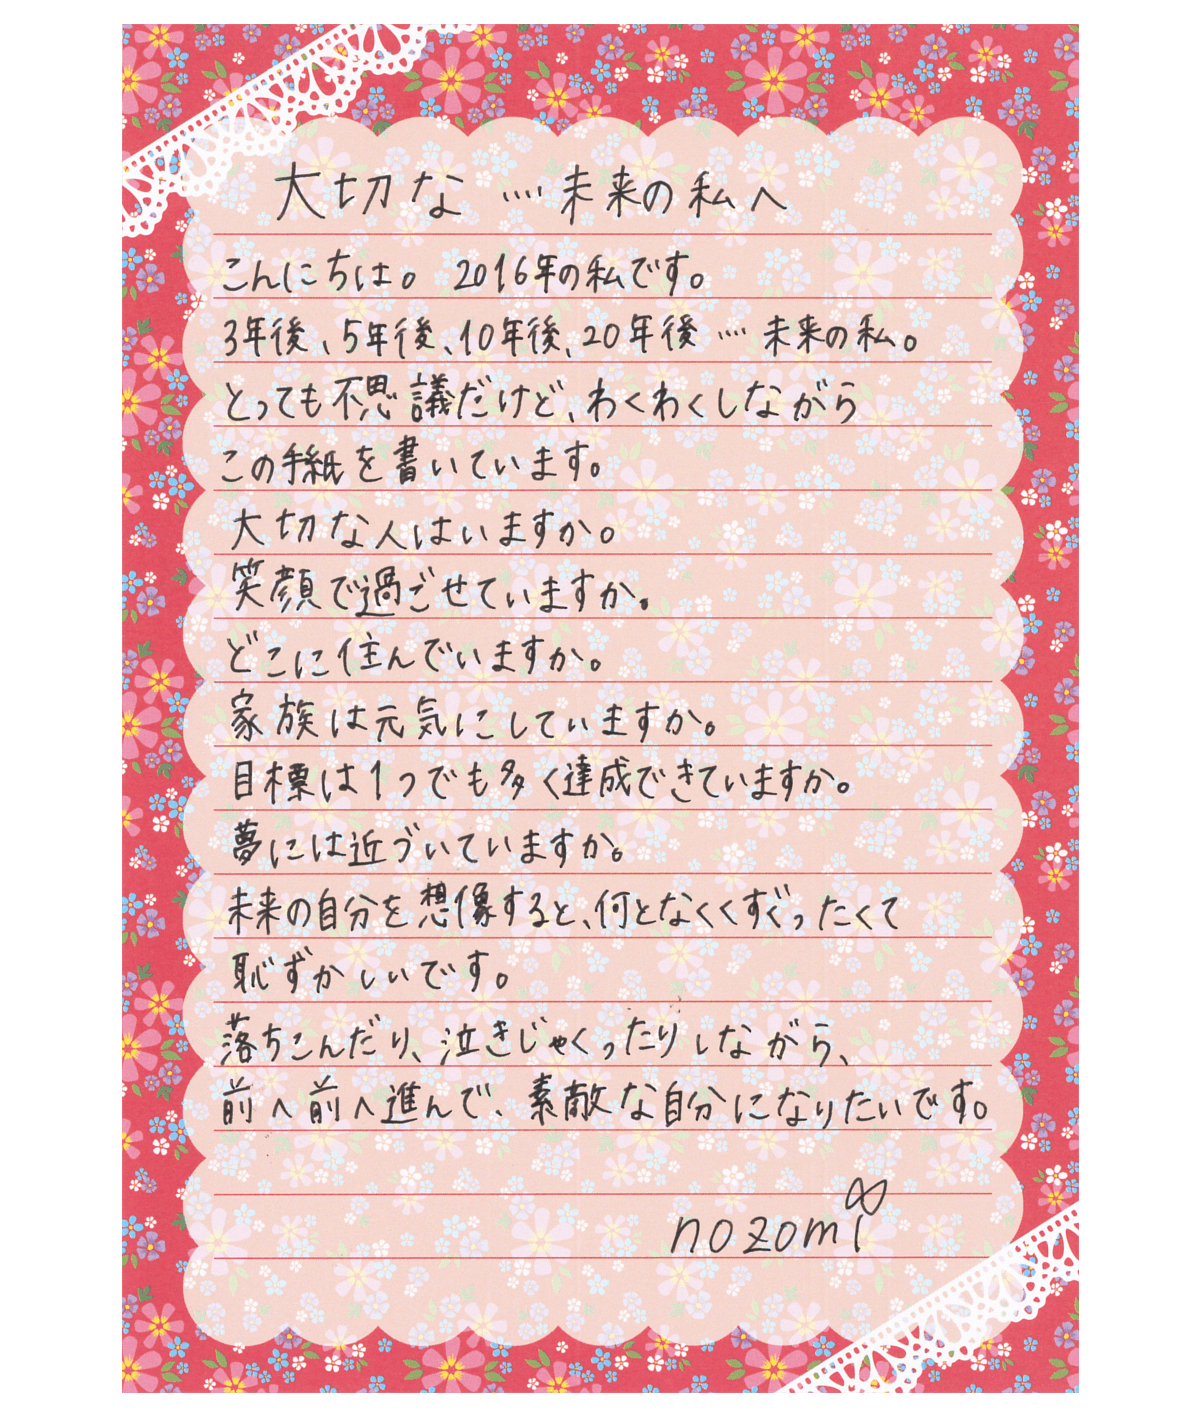 大切な …. 未来の私へ
こんにちは。 2016年の私です。
3年後、5年後、10年後、20年後 …. 未来の私。
とっても不思議だけど、わくわくしながら
この手紙を書いています。
大切な人はいますか。
笑顔で過ごせていますか。
どこに住んでいますか。
家族は元気にしていますか。
目標は1つでも多く達成できていますか。
夢には近づいていますか。
未来の自分を想像すると、何となくくすぐったくて
恥ずかしいです。
落ちこんだり、泣きじゃくったりしながら、
前へ前へ進んで、素敵な自分になりたいです。
nozomi